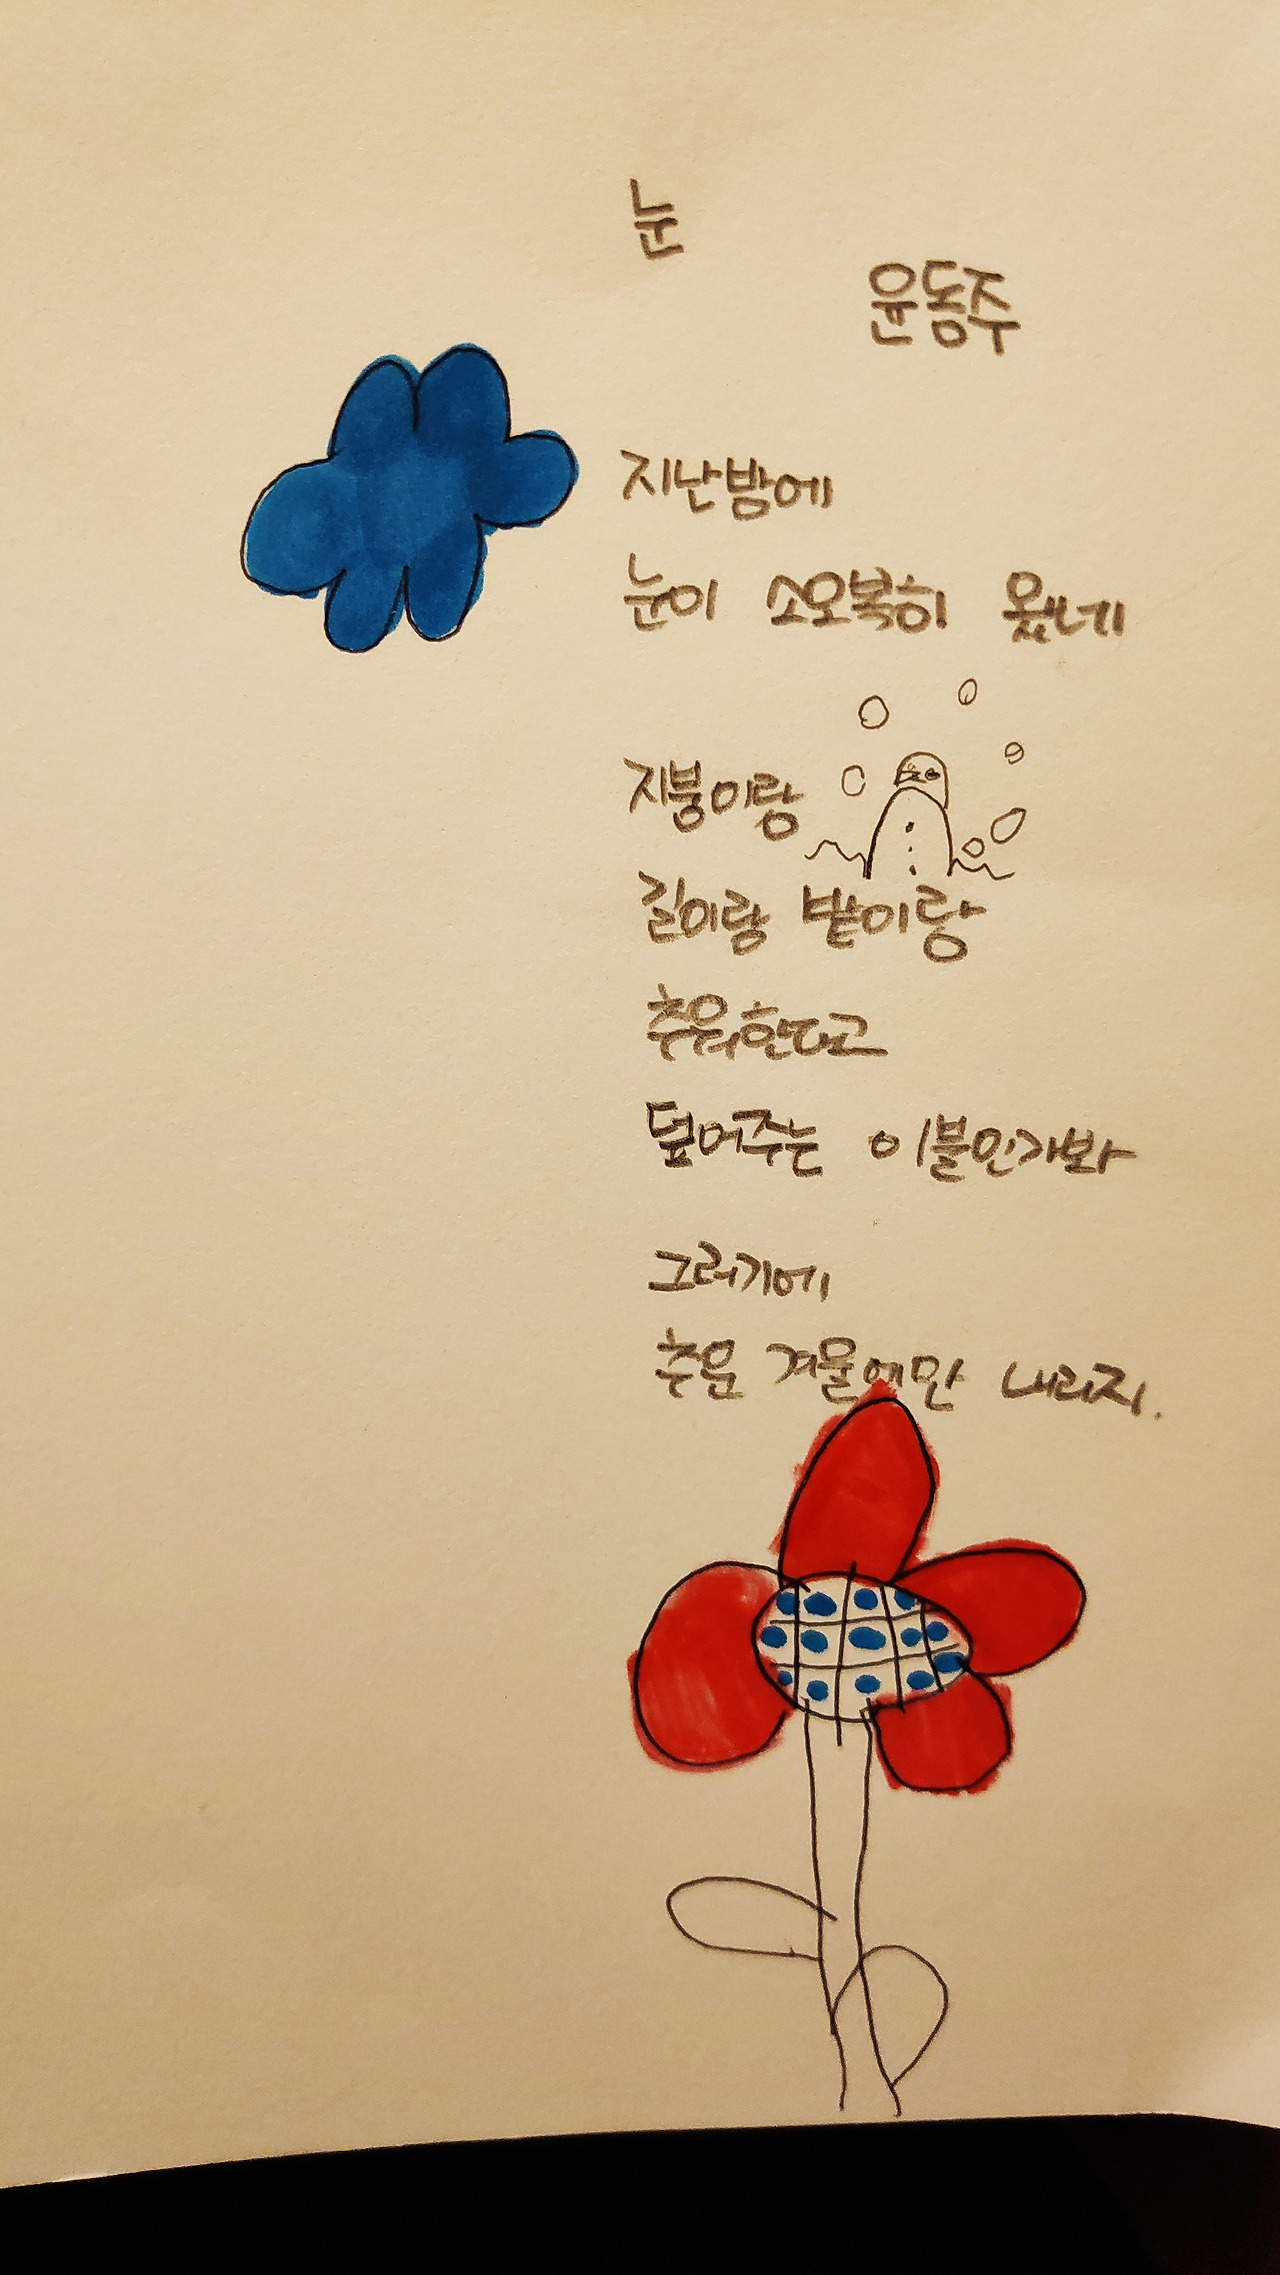 눈
윤동주
지난밤에
눈이 소오복히 왔네
지붕이랑
길이랑 밭이랑
추워한다고
덮어주는 이불인가봐
그러기에
추운 겨울에만 내리지.